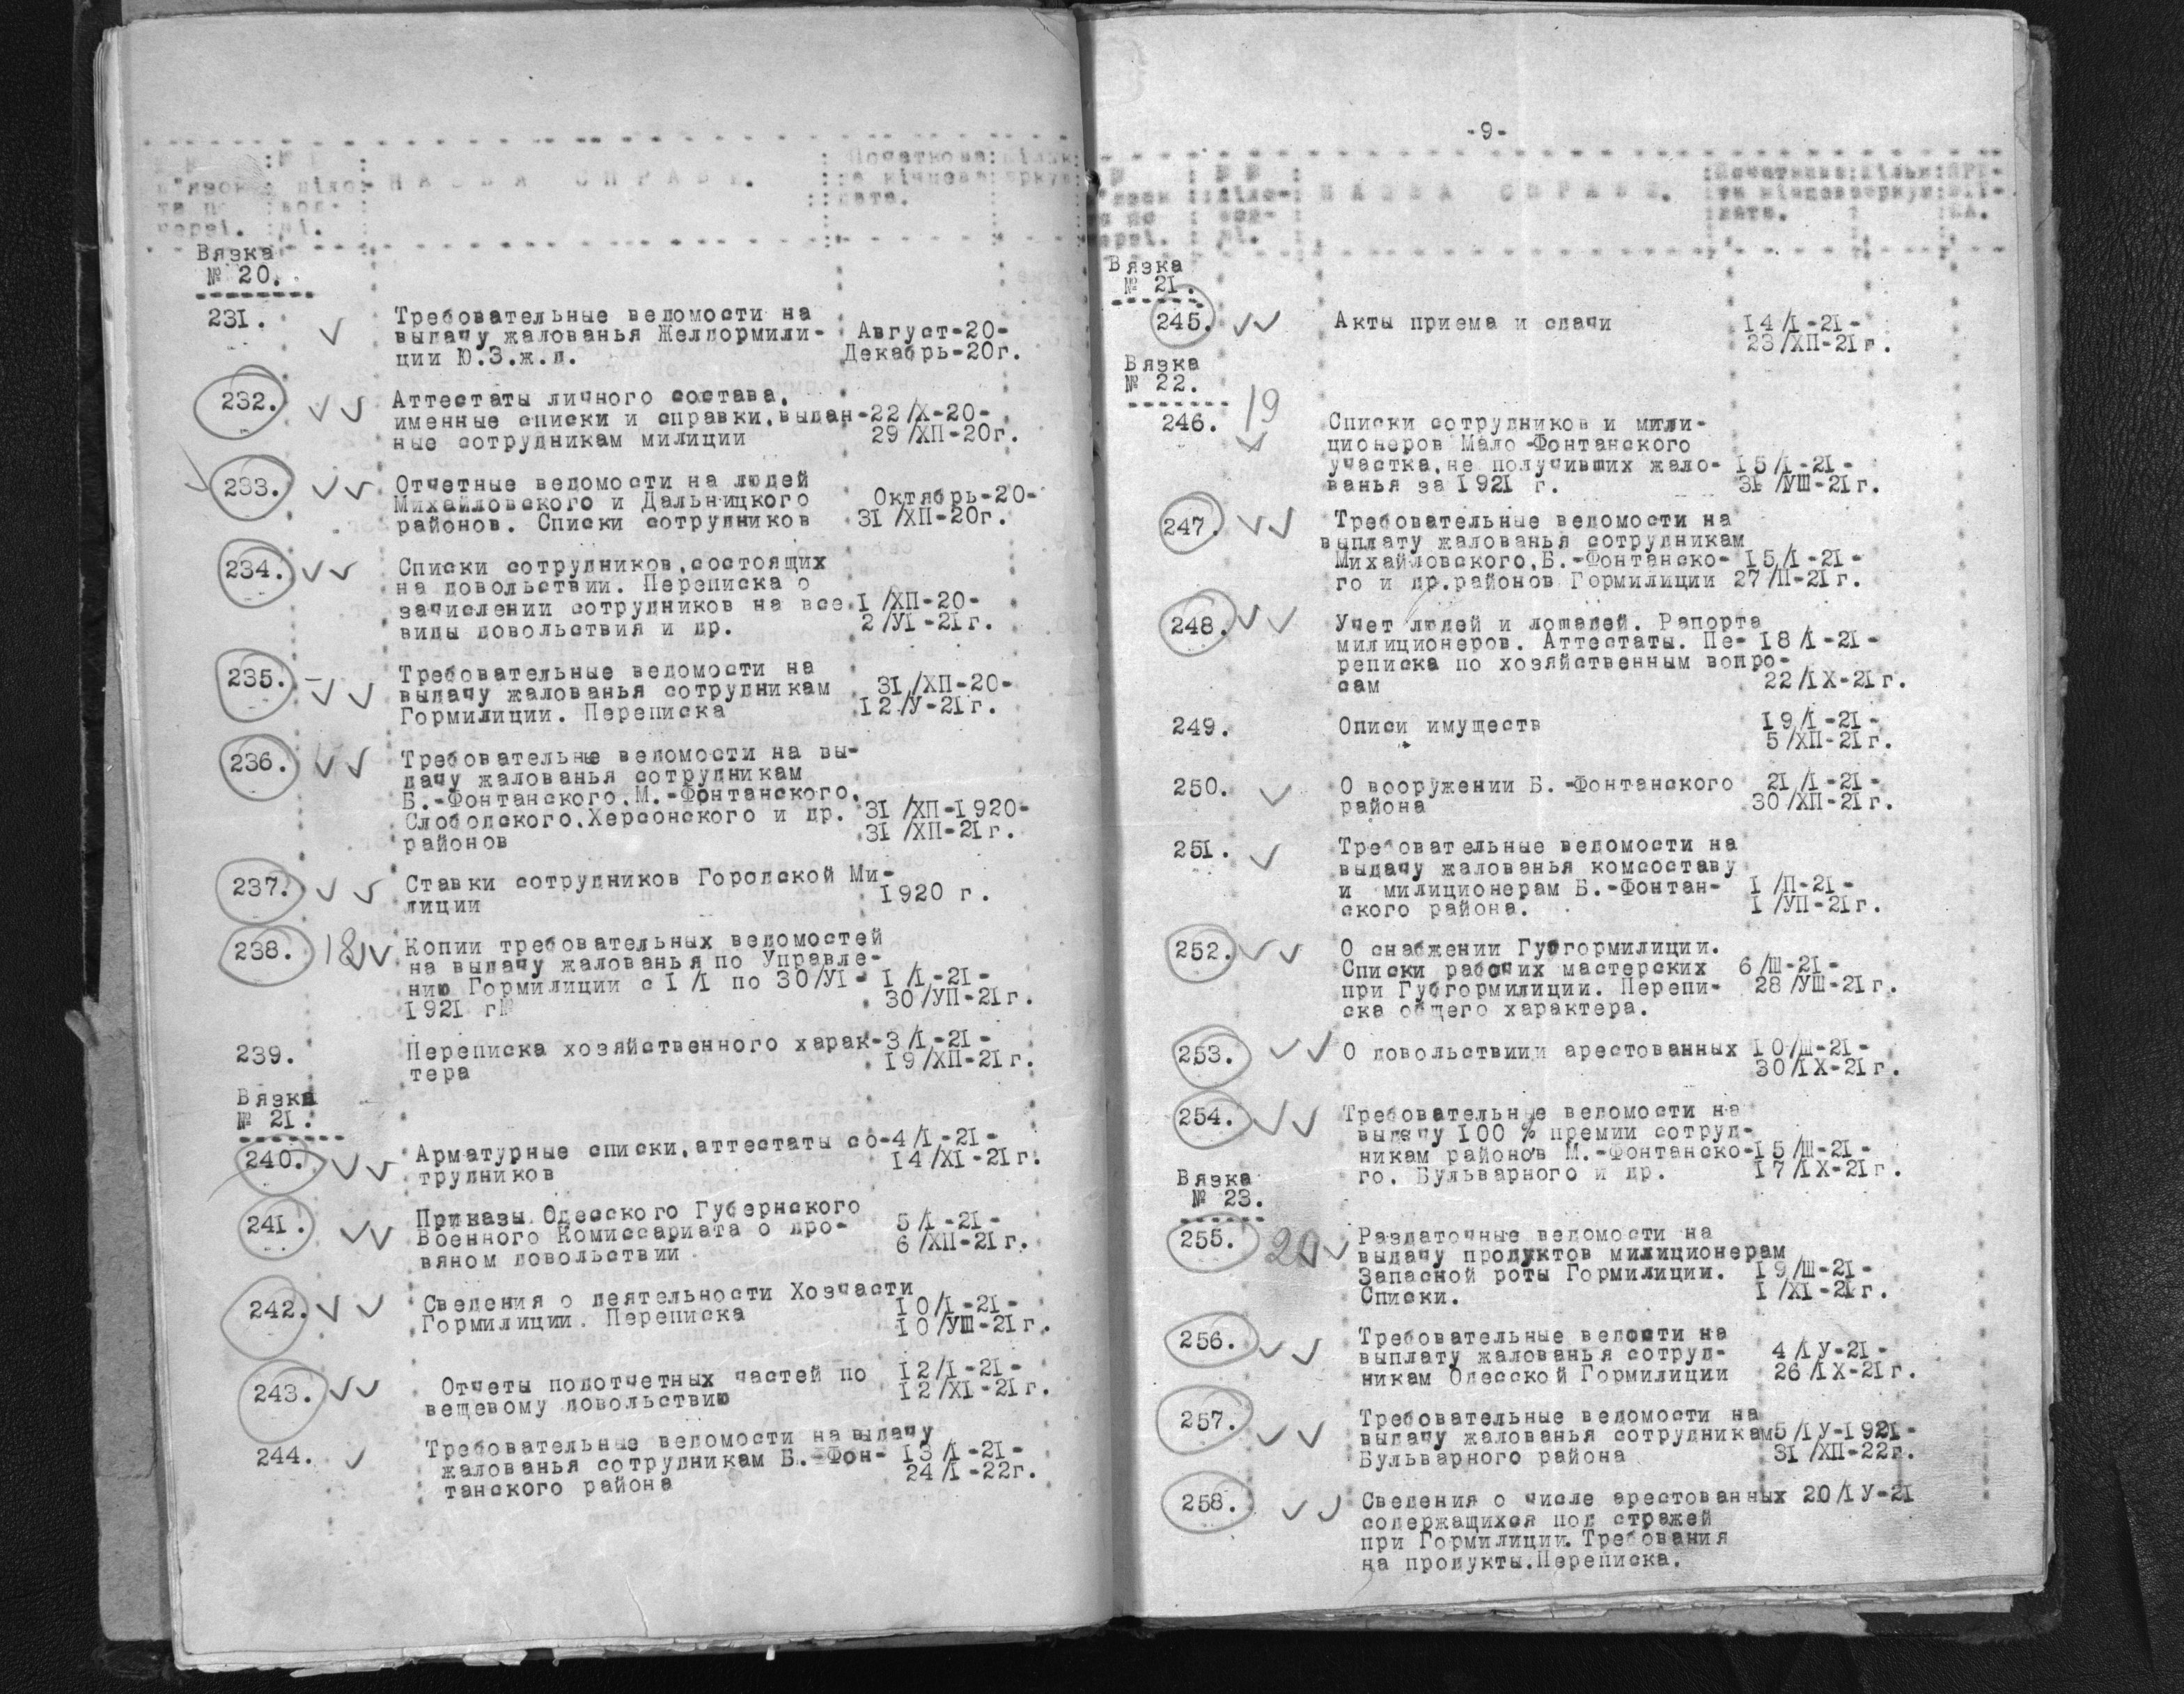 НАЗВА СПРАВИ.
Початкова
та кінцева
дата.
Вязка
№ 20.
231. Требовательные ведомости на
выдачу жалованья Желдормили- Август-20-
ции Ю.З.ж.д. Декабрь-20г.
232. Аттестаты личного состава,
именные списки и справки,выдан-22/X-20-
ные сотрудникам милиции 29/ХП-20г.
233. Отчетные ведомости на людей
Михайловского и Дальницкого Октябрь-20-
районов. Списки сотрудников 31/ХП-20г.
234. Списки сотрудников,состоящих
на довольствии. Переписка о
зачислении сотрудников на все 1/ХП-20-
виды довольствия и др. 2/У1-21г.
235. Требовательные ведомости на
выдачу жалованья сотрудникам 31/ХП-20-
Гормилиции. Переписка 12/У-21г.
236. Требовательне ведомости на вы-
дачу жалованья сотрудникам
Б.-Фонтанского,М.-Фонтанского,
Слободского,Херсонского и др. 31/ХП-1920-
районов 31/ХП-21г.
237. Ставки сотрудников Городской Ми-
лиции 1920 г.
238. 18 Копии требовательных ведомостей
на выдачу жалованья по Управле-
нию Гормилиции с 1/1 по 30/У1- 1/1-21-
1921 г№ 30/УП-21г.
239. Переписка хозяйственного харак-3/1-21-
тера 19/ХП-21г.
Вязка
№ 21.
240. Арматурные списки,аттестаты со-4/1-21-
трудников 14/Х1-21г.
241. Приказы Одесского Губернского
Военного Комиссариата о дро- 5/1-21-
вяном довольствии 6/ХП-21г.
242. Сведения о деятельности Хозчасти
Гормилиции. Переписка 10/1-21-
10/УШ-21г.
243. Отчеты подотчетных частей по 12/1-21-
вещевому довольствию 12/Х1-21г.
244. Требовательные ведомости на выдачу
жалованья сотрудникам Б.-Фон- 13/1-21-
танского района 24/1-22г.
-9-
НАЗВА СПРАВИ.
Вязка
№ 21.
245. Акты приема и сдачи 14/1-21-
23/ХП-21г.
Вязка
№ 22.
19
246. Списки сотрудников и мили-
ционеров Мало-Фонтанского
участка,не получивших жало- 15/1-21-
ванья за 1921 г. 31/УШ-21г.
247. Требовательные ведомости на
выплату жалованья сотрудникам
Михайловского,Б.-Фонтанско- 15/1-21-
го и др.районов Гормилиции 27/П-21г.
248. Учет людей и лошадей. Рапорта
милиционеров. Аттестаты. Пе- 18/1-21-
реписка по хозяйственным вопро-
сам 22/1Х-21г.
249. Описи имуществ 19/1-21-
5/ХП-21г.
250. О вооружении Б.-Фонтанского 21/1-21-
района 30/ХП-21г.
251. Требовательные ведомости на
выдачу жалованья комсоставу
и милиционерам Б.-Фонтан- 1/П-21-
ского района. 1/УП-21г.
252. О снабжении Губгормилиции.
Списки рабочих мастерских 6/Ш-21-
при Губгормилиции. Перепи- 28/УШ-21г.
ска общего характера.
253. О довольствиии арестованных 10/Ш-21-
30/1Х-21г.
254. Требовательные ведомости на
выдачу 100 % премии сотруд-
никам районов М.-Фонтанско-15/Ш-21-
го, Бульварного и др. 17/1Х-21г.
Вязка
№ 23.
255. 20 Раздаточные ведомости на
выдачу продуктов милиционерам
Запасной роты Гормилиции. 19/Ш-21-
Списки. 1/Х1-21г.
256. Требовательные ведости на
выплату жалованья сотруд- 4/1У-21-
никам Одесской Гормилиции 26/1Х-21г.
257. Требовательные ведомости на
выдачу жалованья сотрудникам5/1У-1921-
Бульварного района 31/ХП-22г.
258. Сведения о числе арестованных 20/1У-21
содержащихся под стражей
при Гормилиции.Требования
на продукты.Переписка.